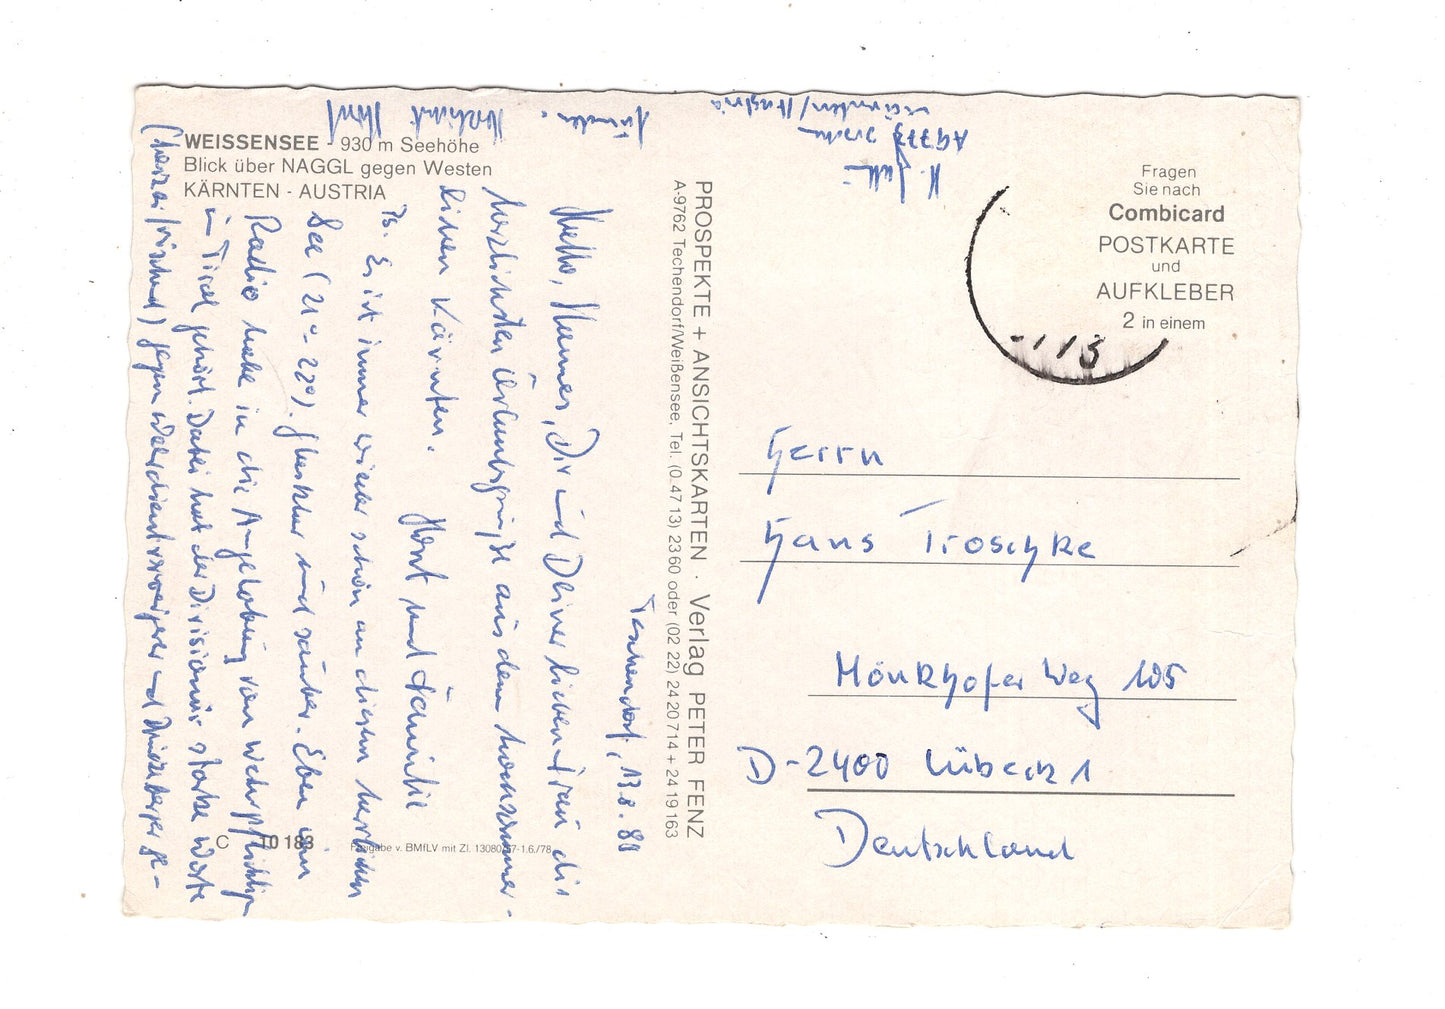 WEISSENSEE - 930 m Seehöhe
Blick über NAGGL gegen Westen
KÄRNTEN - AUSTRIA
Techendorf, 13.8.80
Hallo, Hannes, Dir und Deiner lieben Frau die
herzlichsten Urlaubsgrüße aus dem hochsommer-
lichen Kärnten.
Horst und Familie
Ps. Es ist immer wieder schön an diesem herrlichen
See (21°-22°), glasklar und sauber. Eben im
Radio habe ich die Angelobung von Wehrpflichtigen
in Tirol gehört. Dabei hat der Divisionär starke Worte
gegen Wehrdienstverweigerer und
Herzlichst Horst
A 9773
Kärnten/Austria
C 10 183
Freigabe v. BMfLV mit Zl. 13080/37-1.6./78
PROSPEKTE + ANSICHTSKARTEN · Verlag PETER FENZ
A-9762 Techendorf/Weißensee, Tel. (0 47 13) 23 60 oder (02 22) 24 20 714 + 24 19 163
Fragen
Sie nach
Combicard
POSTKARTE
und
AUFKLEBER
2 in einem
Herrn
Hans Troschke
Mönkhofer Weg 105
D-2400 Lübeck 1
Deutschland